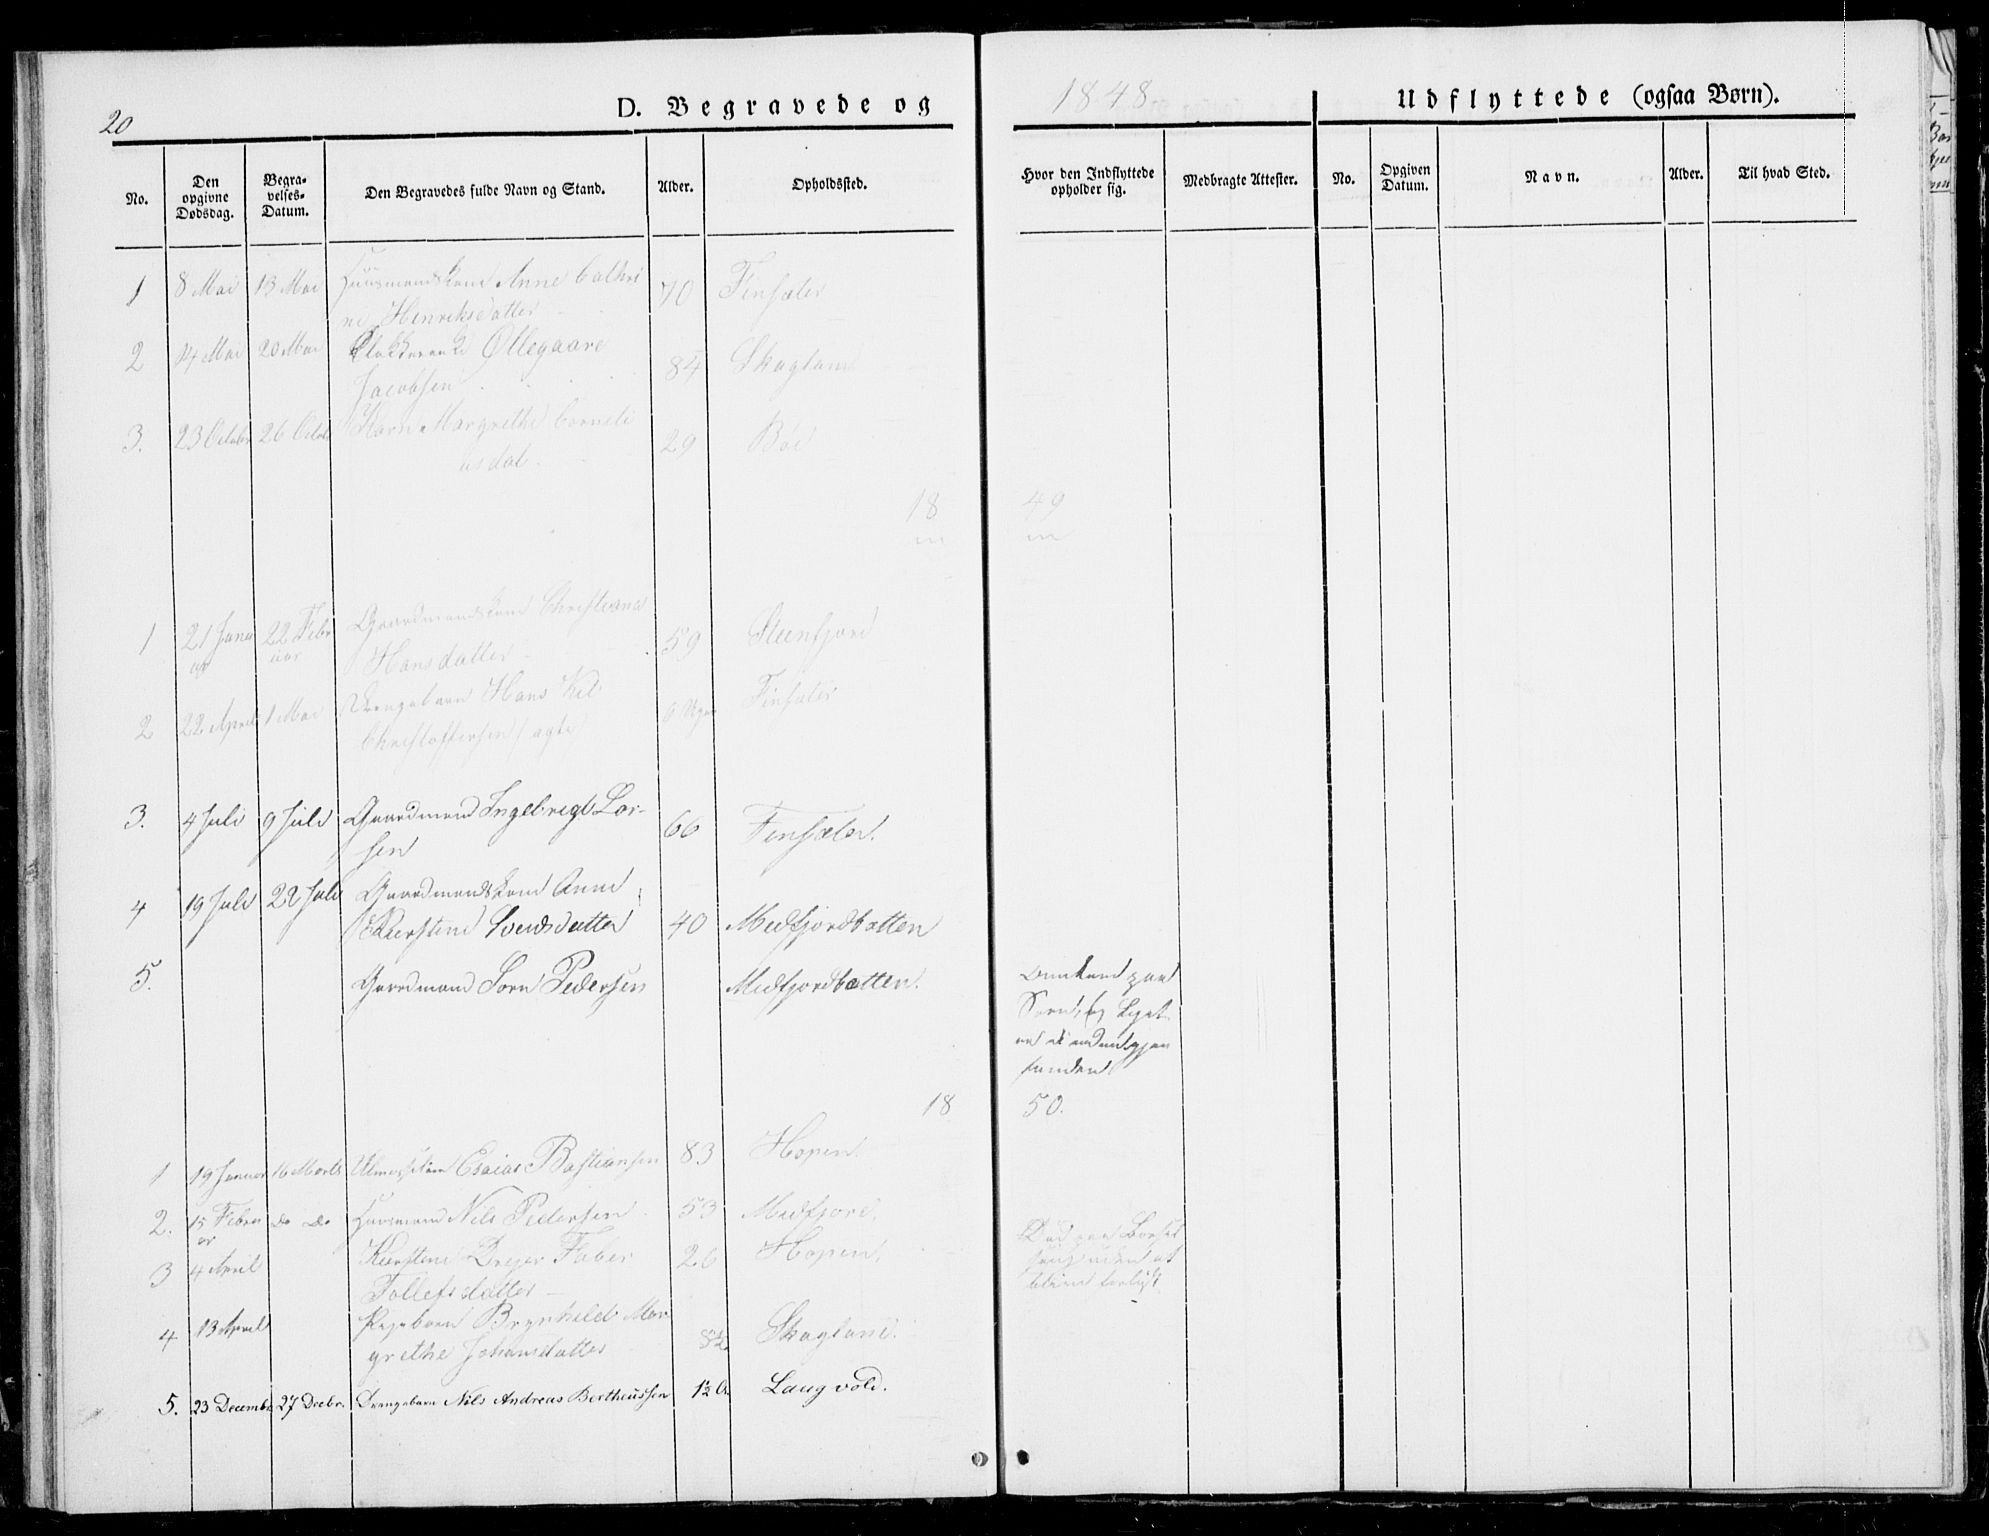 20
D. Begravede og
1848
Udflyttede (ogsaa Børn).
No.
Den opgivne Dødsdag.
Begravelses-Datum.
Den Begravedes fulde Navn og Stand.
Alder.
Opholdssted.
Hvor den Indflyttede opholder sig.
Medbragte Attester.
No.
Opgiven Datum.
Navn.
Alder.
Til hvad Sted.
1 8 Mai 13 Mai Huusmandskone Anne Cathri
ne Henriksdatter 70 Finsæter
2 14 Mai 20 Mai Øllegaard
Jacobsen 84 Skagland
3. 23 Octobr 26 Octob Karn Margrethe Corneli
usdat. 29 Böe
18 49
1 21 Janu
ar 22 Febr
uar Gaardmandskone Christiana
Hansdatter 59 Steenfjord
2 22 April 1 Mai Drengebarn Hans
Christoffersen (ægte) 6 Uger Finsæter
3. 4 Juli 9 Juli Gaardmand Ingebrigt Lar-
sen 66 Finsæter.
4 19 Juli 22 Juli Gaardmandskone Anne
Kierstine Svendsdatter 40 Medfjordbotten
5. Gaardmand Sörn Pedersen Medfjordbotten.
18 50.
1 19 Januar 16 Marts Esaias Bastiansen 83 Hopen.
2. 15 Febru
ar Do Do Huusmand Nils Pedersen 53 Medfjord.
3 4 April Kierstine Dreyer Faber
Tollefsdatter 26 Hopen.
4 13 April Pigebarn Brynhild Mar
grethe Johansdatter 8½ Skagland.
5. 23 Decembr 27 Decbr. Drengebarn Nils Andreas Bertheussen 1½ Laugvold.